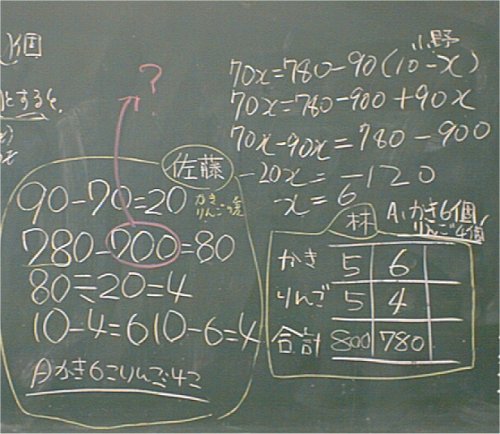 x個
とすると、
佐藤
90-70=20 かき りんごの差
780-700=80
80÷20=4
10-4=6 10-6=4
A かき6こりんご4こ
?
小野
70x=780-90(10-x)
70x=780-900+90x
70x-90x=780-900
-20x=-120
x=6
A、かき6個
りんご4個
林
かき 5 6
りんご 5 4
合計 800 780